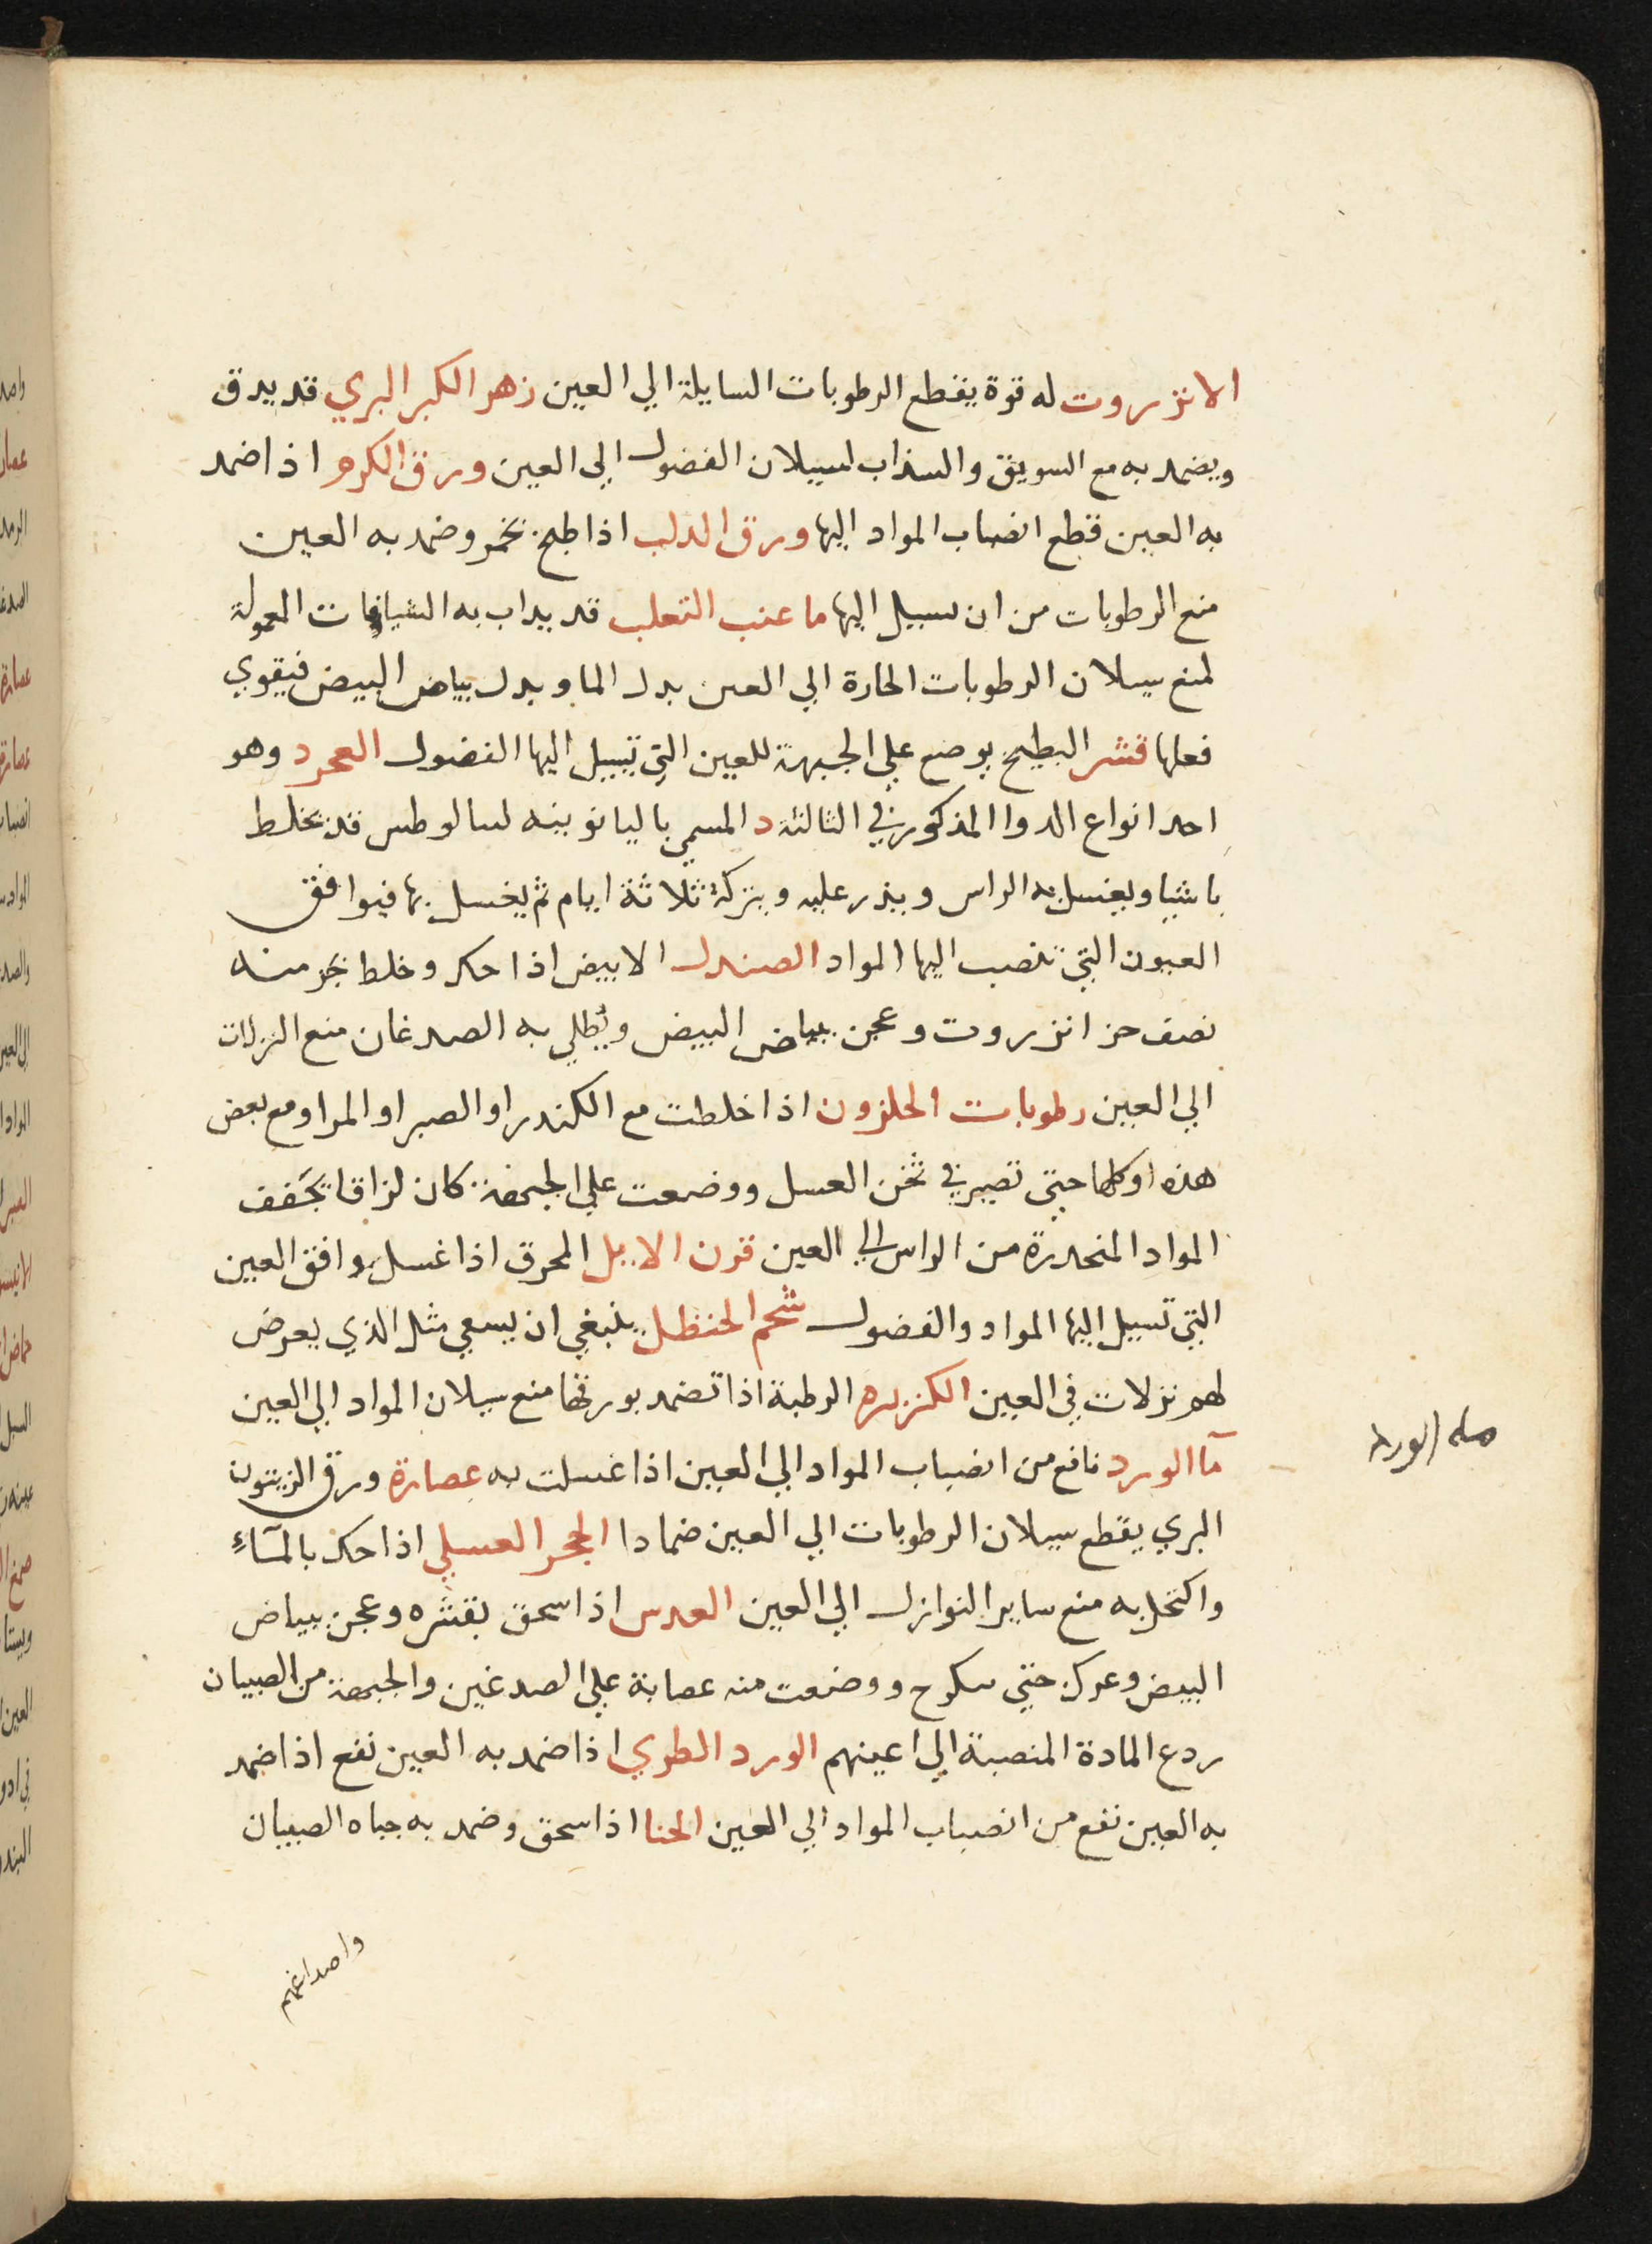 الانزروت له قوة يقطع الرطوبات السايلة الي العين زهر الكبر البري قد يدق
ويضمد به مع السويق والسذاب لسيلان الفضول الي العين ورق الكرم اذا ضمد
به العين قطع انصباب المواد اليها ورق الدلب اذا طبخ بخمر وضمد به العين
منع الرطوبات من ان تسيل اليها ما عنب الثعلب قد يداب به الشيافات المعمولة
لمنع سيلان الرطوبات الحارة الي العين بدل الما وبدل بياض البيض فيقوي
فعلها قشر البطيخ يوضع علي الجبهة للعين التي تسيل اليها الفضول وهو
احد انواع الدوا المذكور في الثالثة د المسمي باليانوبينه قد يخلط
باشيا ويغسل به الراس ويذر عليه ويتركه ثلاثة ايام ثم يغسل بها فيوافق
العيون التي تنصب اليها المواد الصندل الابيض اذا حك وخلط بجز منه
نصف جز انزروت وعجن ببياض البيض ويطلي به الصدغان منع النزلات
الي العين رطوبات الحلزون اذا خلطت مع الكندر او الصبر او المر او مع بعض
هذه او كلها حتي تصير في ثخن العسل ووضعت علي الجبهة كان لزاقا يجفف
المواد المنحدرة من الراس الي العين قرن الايل المحرق اذا غسل وافق العين
التي تسيل اليها المواد والفضول شحم الحنظل ينبغي ان يسعي مثل الذي يعرض
لهم نزلات في العين الكزبره الرطبة اذا تضمد بورقها منع سيلان المواد الي العين
مآ الورد نافع من انصباب المواد الي العين اذا غسلت به عصارة ورق الزيتون
البري يقطع سيلان الرطوبات الي العين ضمادا الحجر العسلي اذا حك بالمآء
واكتحل به منع ساير النوازل الي العين العدس اذا سحق بقشره وعجن ببياض
البيض وعرك حتي ووضعت منه عصابة علي الصدغين والجبهة من الصبيان
ردع المادة المنصبة الي اعينهم الورد الطري اذا ضمد به العين نفع اذا ضمد
به العين نفع من انصباب المواد الي العين الحنا اذا سحق وضمد به جباه الصبيان
واصداغهم
ماء الورد